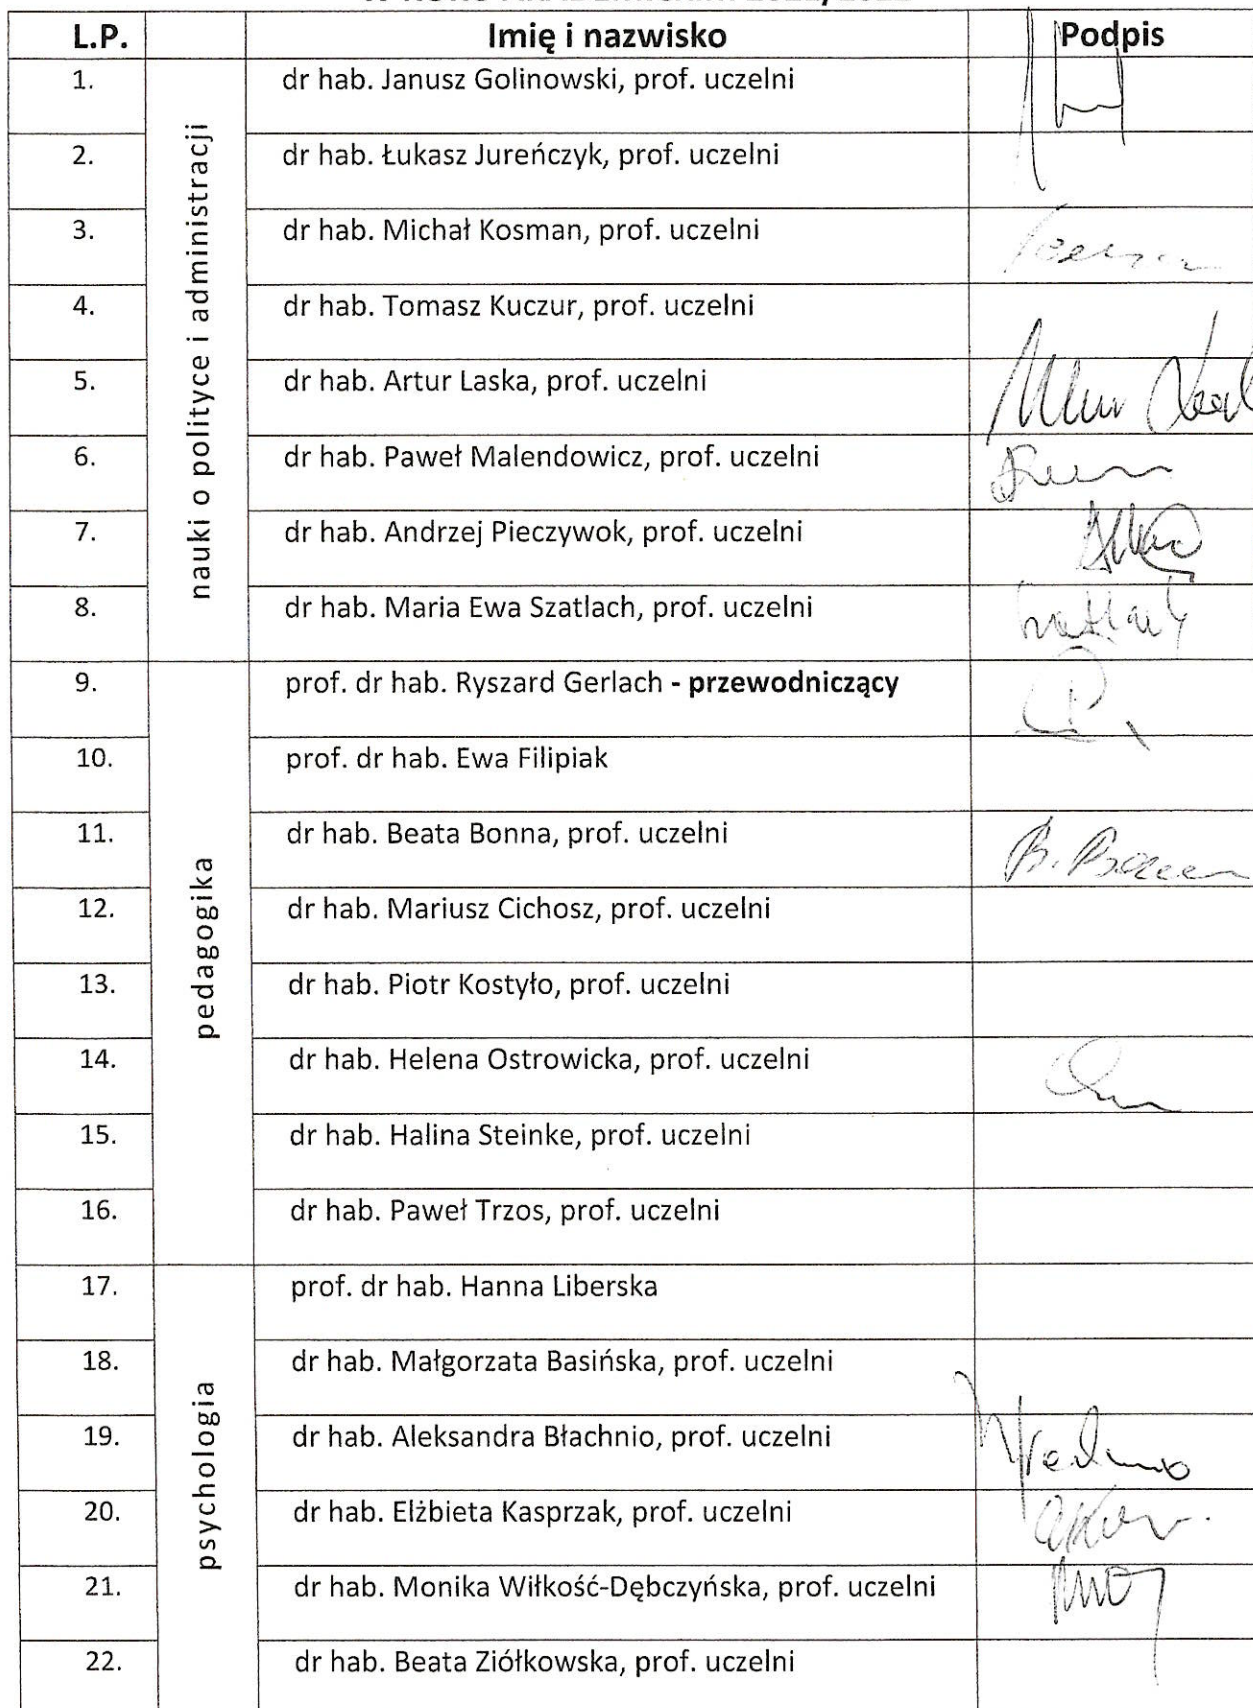 L.P. Imię i nazwisko Podpis
1. dr hab. Janusz Golinowski, prof. uczelni
2. dr hab. Łukasz Jureńczyk, prof. uczelni
3. dr hab. Michał Kosman, prof. uczelni
4. dr hab. Tomasz Kuczur, prof. uczelni
5. dr hab. Artur Laska, prof. uczelni
6. dr hab. Paweł Malendowicz, prof. uczelni
7. dr hab. Andrzej Pieczywok, prof. uczelni
8. dr hab. Maria Ewa Szatlach, prof. uczelni
nauki o polityce i administracji
9. prof. dr hab. Ryszard Gerlach - przewodniczący
10. prof. dr hab. Ewa Filipiak
11. dr hab. Beata Bonna, prof. uczelni
12. dr hab. Mariusz Cichosz, prof. uczelni
13. dr hab. Piotr Kostyło, prof. uczelni
14. dr hab. Helena Ostrowicka, prof. uczelni
15. dr hab. Halina Steinke, prof. uczelni
16. dr hab. Paweł Trzos, prof. uczelni
pedagogika
17. prof. dr hab. Hanna Liberska
18. dr hab. Małgorzata Basińska, prof. uczelni
19. dr hab. Aleksandra Błachnio, prof. uczelni
20. dr hab. Elżbieta Kasprzak, prof. uczelni
21. dr hab. Monika Wiłkość-Dębczyńska, prof. uczelni
22. dr hab. Beata Ziółkowska, prof. uczelni
psychologia